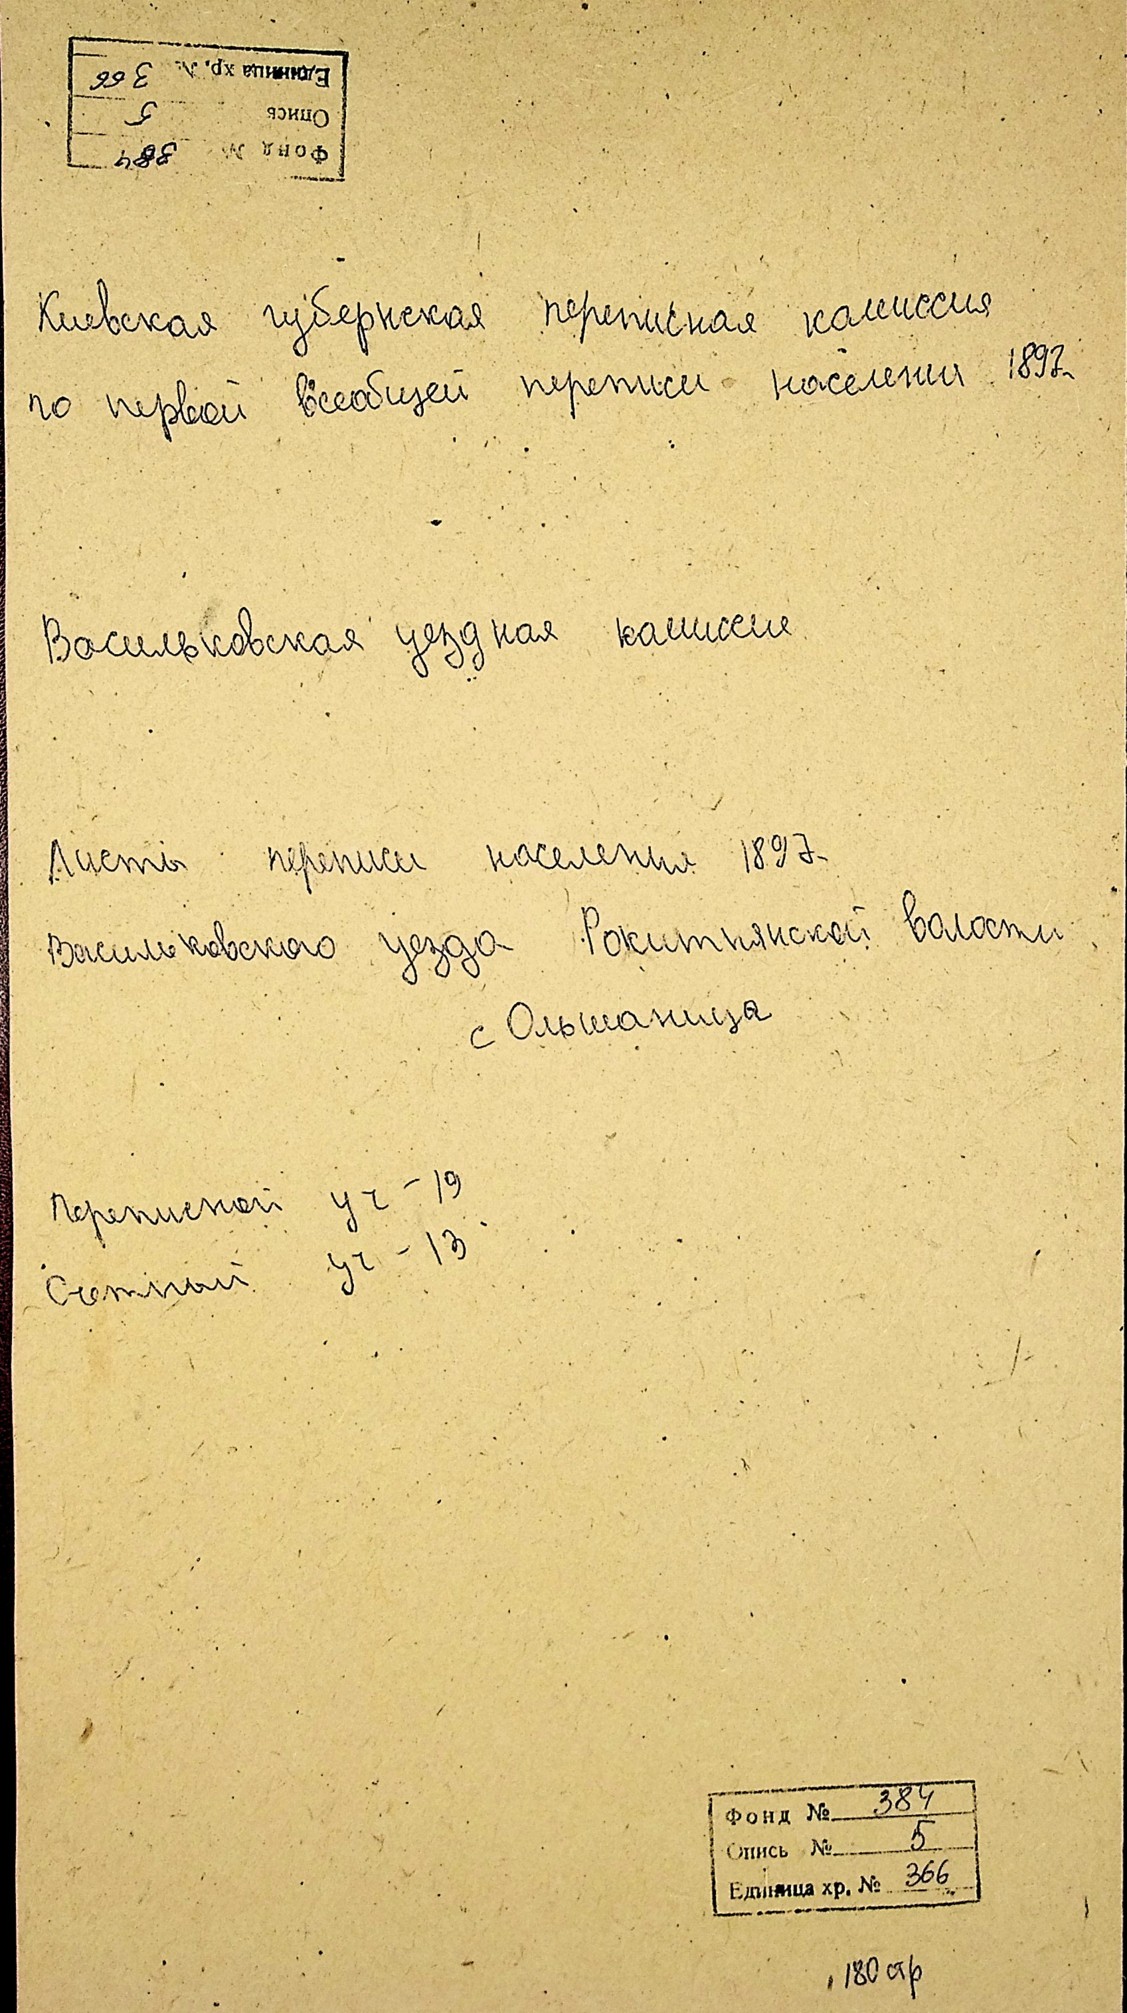 Фонд № 384
Опись 5
Единица хр. № 366
Киевская губернская переписная комиссия
по первой всеобщей переписи населения 1897
Васильковская уездная комиссия
Листы переписи населения 1897
Васильковского уезда Рокитнянской волости
с Ольшаница
Переписной уч - 19
Счетный уч - 13
Фонд № 384
Опись № 5
Единица хр. № 366
180 стр